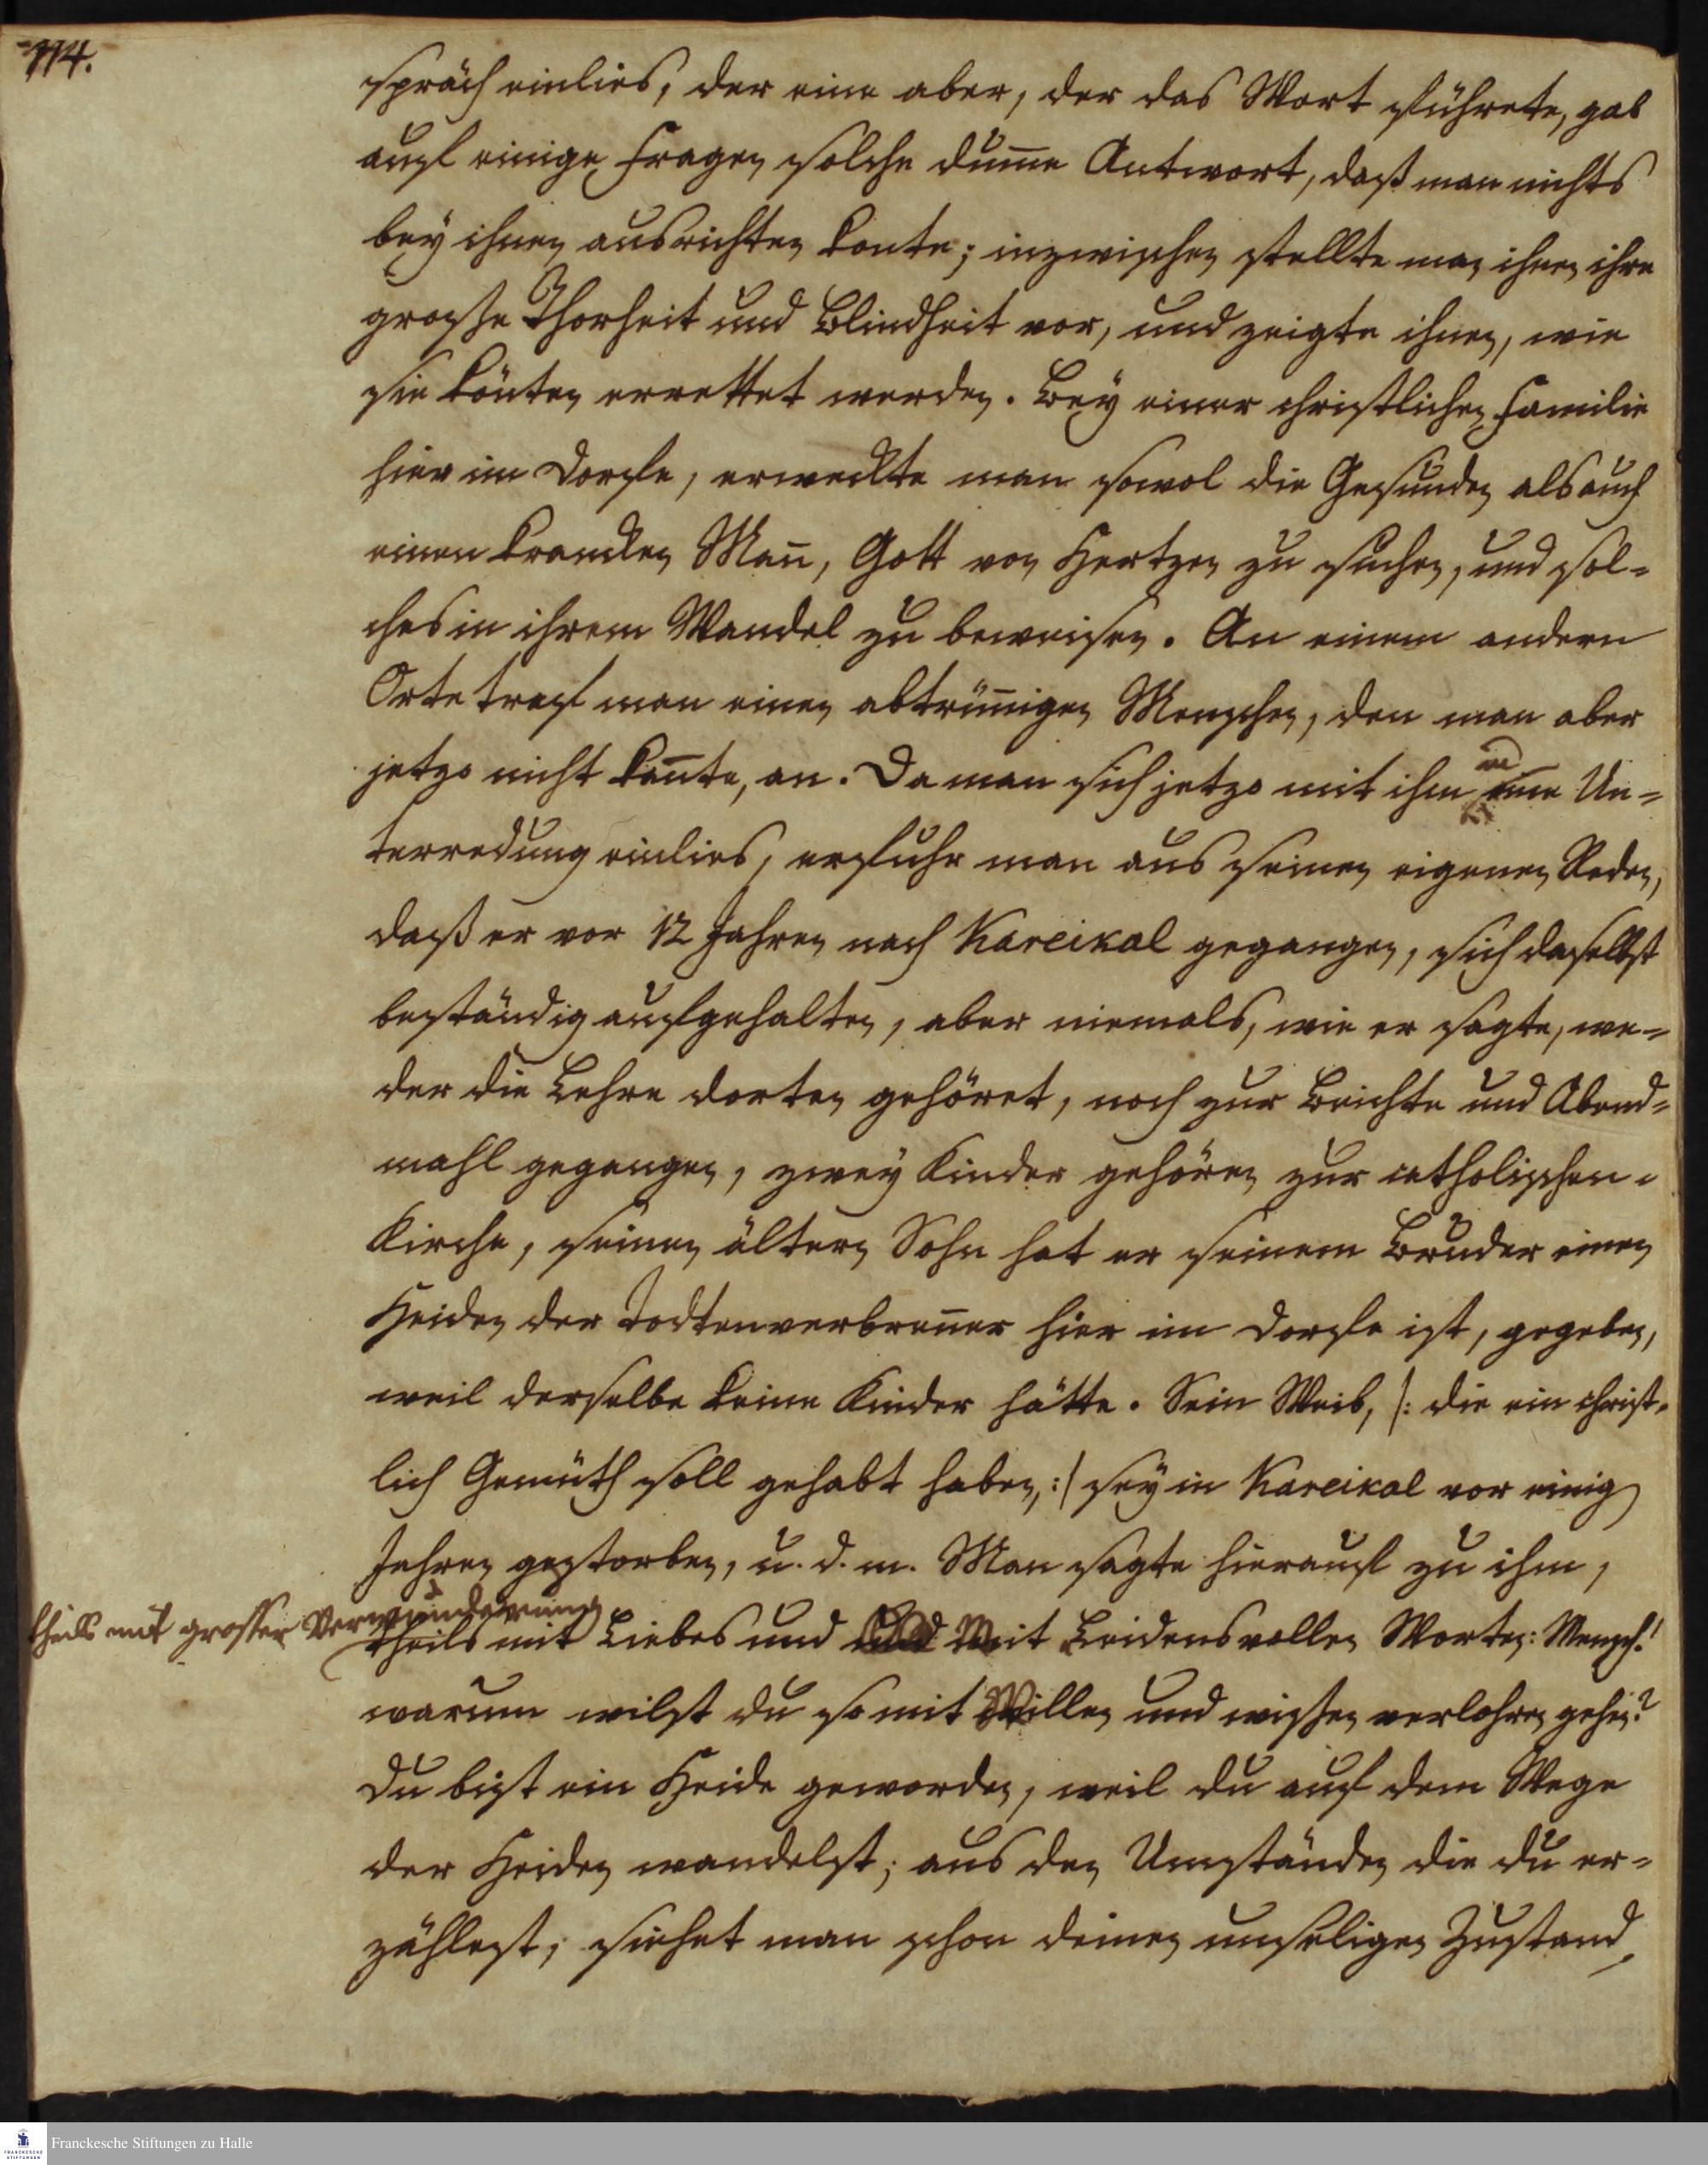 114.
spräch einlies, der eine aber, der das Wort führete, gab
auf einige Fragen solche dum̄e Antwort, daß man nichts
bey ihnen ausrichten konte; inzwischen stellte man ihnen ihre
grosse Thorheit und Blindheit vor, und zeigte ihnen, wie
sie könten errettet werden. Bey einer christlichen Familie
hier im Dorfe, erweckte man sowol die Gesunden als auch
einen krancken Man̄, Gott von Hertzen zu suchen, und sol-
ches in ihrem Wandel zu beweisen. An einem andern
Orte traf man einen abtrün̄igen Menschen, den man aber
jetzo nicht kan̄te, an. Da man sich jetzo mit ihm in eine Un-
terredung einlies, erfuhr man aus seinen eigenen Reden,
daß er vor 12 Jahren nach Kareikal gegangen, sich daselbst
beständig aufgehalten, aber niemals, wie er sagte, we-
der die Lehre dorten gehöret, noch zur Beichte und Abend-
mahl gegangen, zwey Kinder gehören zur catholischen
Kirche, seinen ältern Sohn hat er seinem Bruder einen
Heiden der Todtenverbren̄er hier im Dorfe ist, gegeben,
weil derselbe keine Kinder hätte. Sein Weib, /: die ein christ-
lich Gemüth soll gehabt haben, :/ sey in Kareikal vor einig
Jahren gestorben, u. d. m. Man sagte hierauf zu ihm,
theils mit grosser Verwunderung
theils mit Liebes und Mit Leidensvollen Worten: Mensch!
warum wilst du so mit Willen und wissen verlohren gehen?
du bist ein Heide geworden, weil du auf dem Wege
der Heiden wandelst; aus den Umständen die du er-
zählest, siehet man schon deinen unseligen Zustand,
Franckesche Stiftungen zu Halle